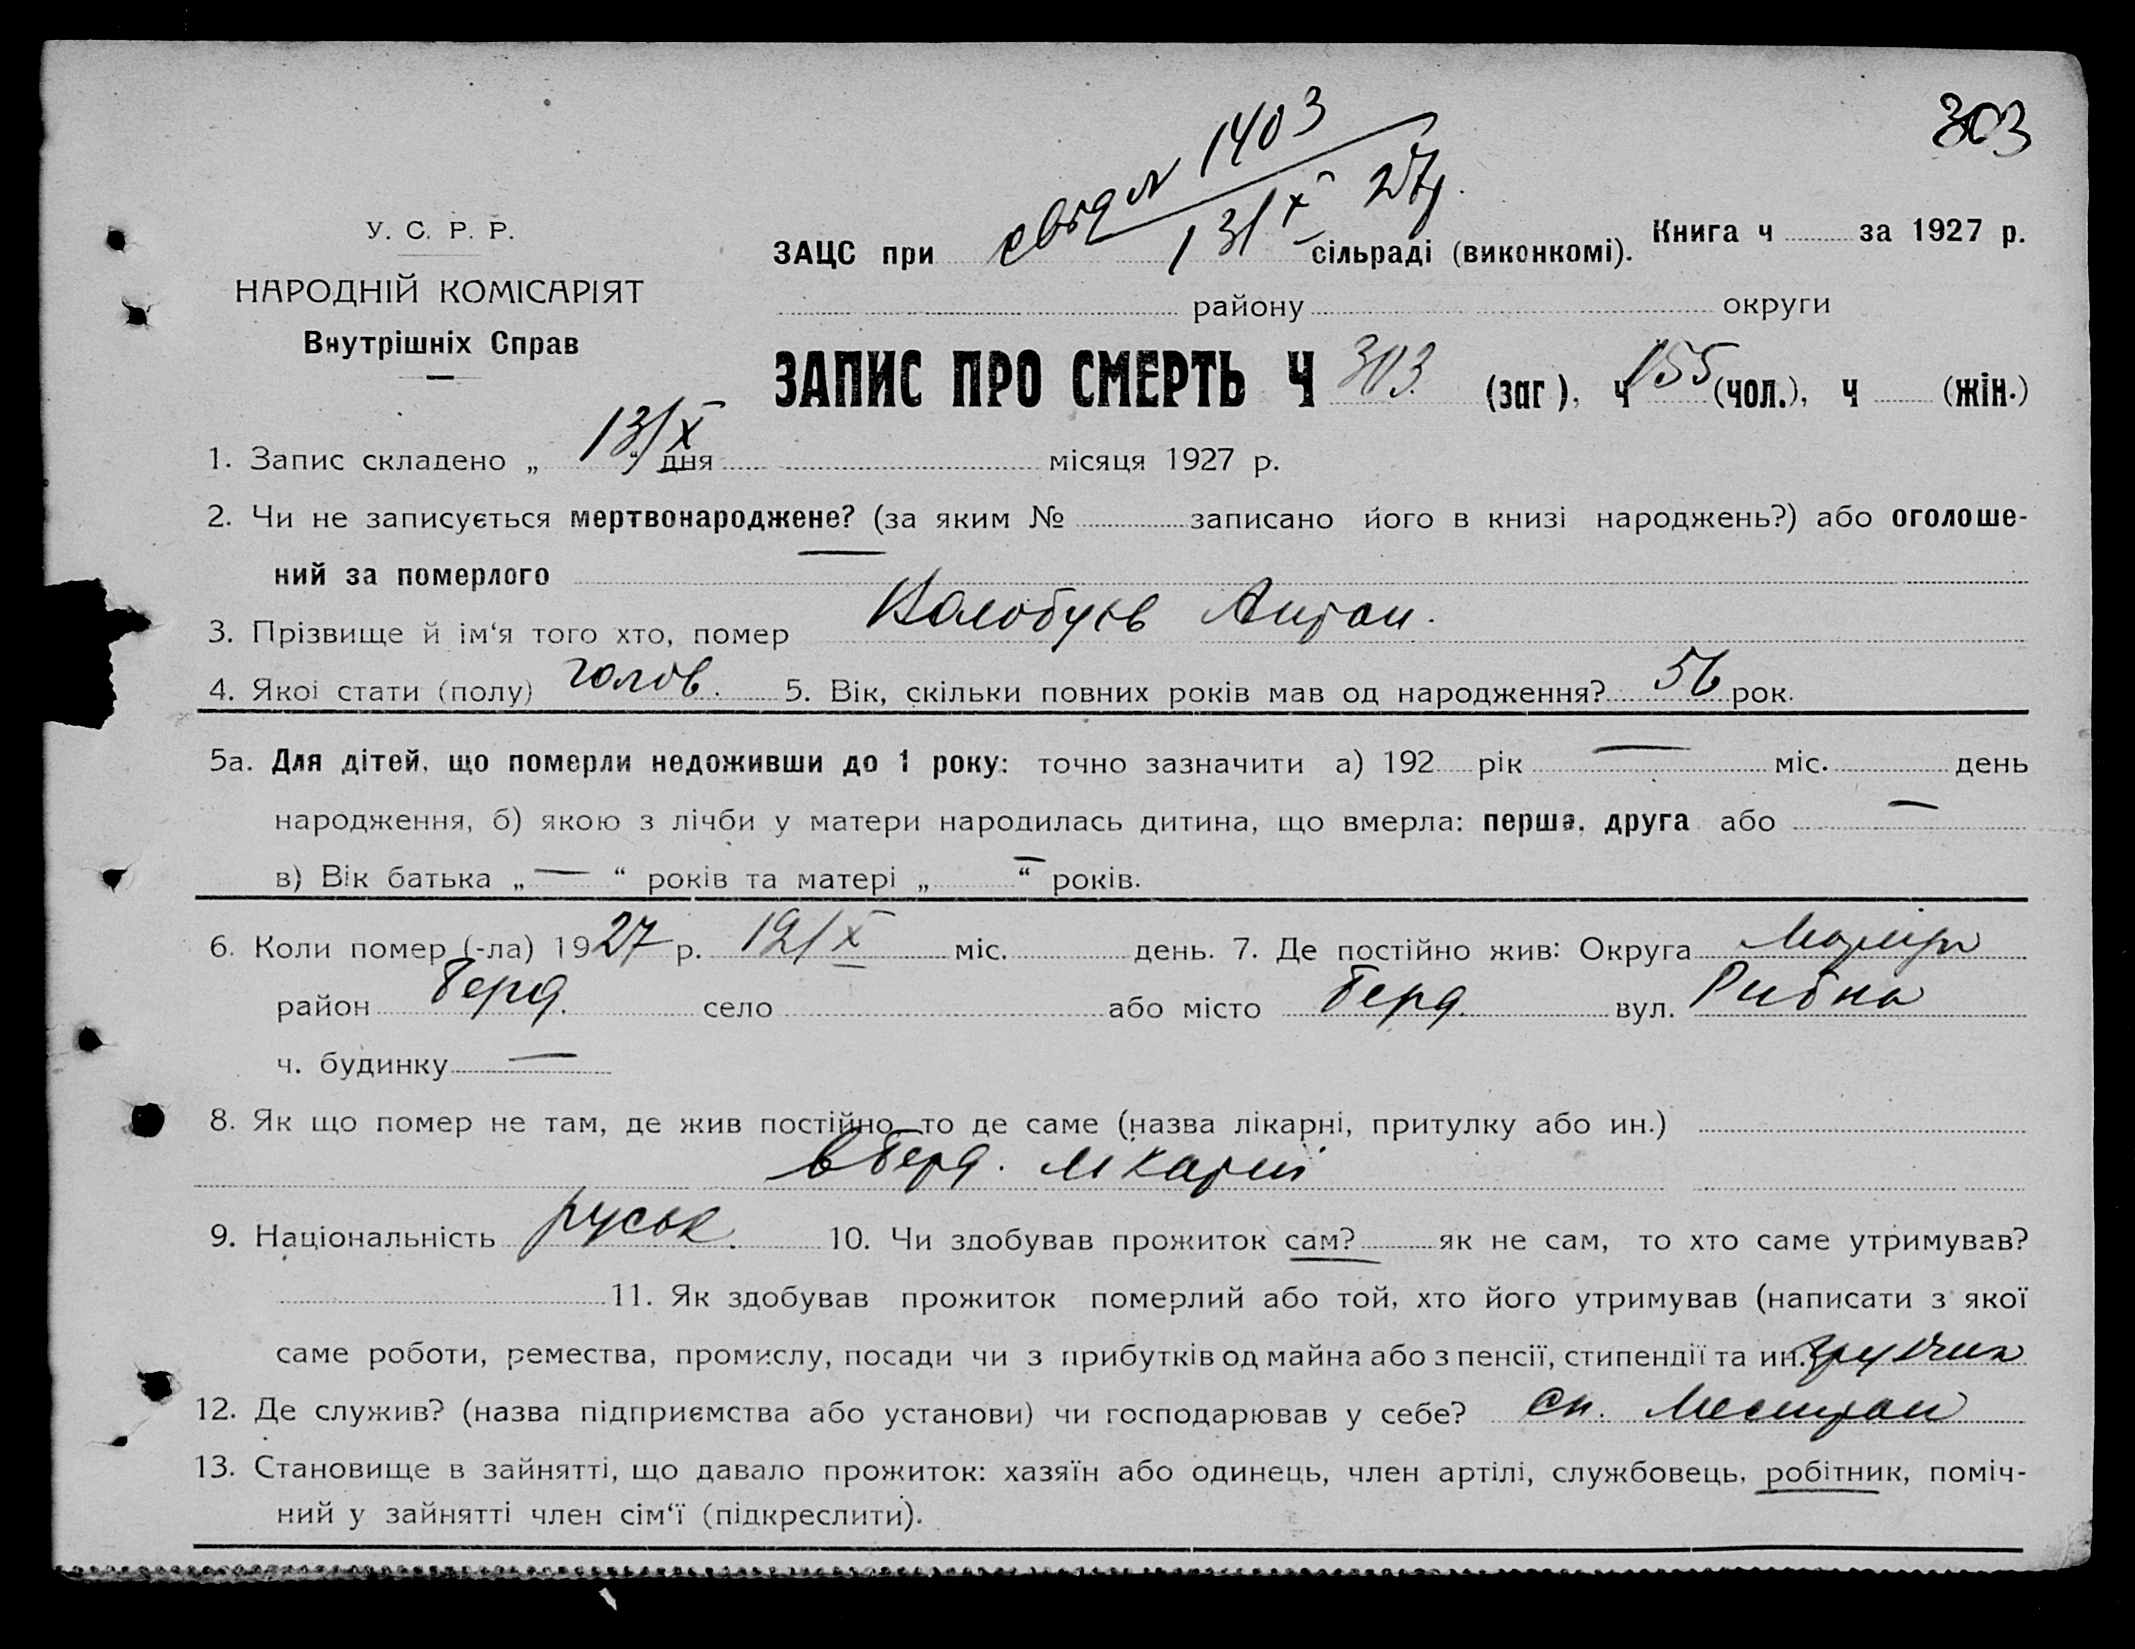 303
свід № 1403
13/X 27 р.
У. С. Р. Р.
НАРОДНІЙ КОМІСАРІЯТ
Внутрішніх Справ
Книга ч за 1927 р.
ЗАЦС при сільраді (виконкомі).
району округи
ЗАПИС ПРО СМЕРТЬ Ч 303. (заг), ч 155 (чол.), ч (жін.)
1. Запис складено „ 13/X “ дня місяця 1927 р.
2. Чи не записується мертвонароджене? (за яким № записано його в книзі народжень?) або оголоше-
ний за померлого —
3. Прізвище й ім‘я того хто, помер Колобуєв Антон.
4. Якої стати (полу) чолов. 5. Вік, скільки повних років мав од народження? 56 рок.
5а. Для дітей, що померли недоживши до 1 року: точно зазначити а) 192 рік — міс. день
народження, б) якою з лічби у матери народилась дитина, що вмерла: перша, друга або —
в) Вік батька „ — “ років та матері „ — “ років.
6. Коли помер (-ла) 1927 р. 12/X міс. день. 7. Де постійно жив: Округа
район Берд. село або місто Берд. вул. Рибна
ч. будинку —
8. Як що помер не там, де жив постійно, то де саме (назва лікарні, притулку або ин.)
в Берд. лікарні
9. Національність руськ. 10. Чи здобував прожиток сам? як не сам, то хто саме утримував?
11. Як здобував прожиток померлий або той, хто його утримував (написати з якої
саме роботи, ремества, промислу, посади чи з прибутків од майна або з пенсії, стипендії та ин.) грузчик
12. Де служив? (назва підприємства або установи) чи господарював у себе?
13. Становище в зайнятті, що давало прожиток: хазяїн або одинець, член артілі, службовець, робітник, поміч-
ний у зайнятті член сім‘ї (підкреслити).